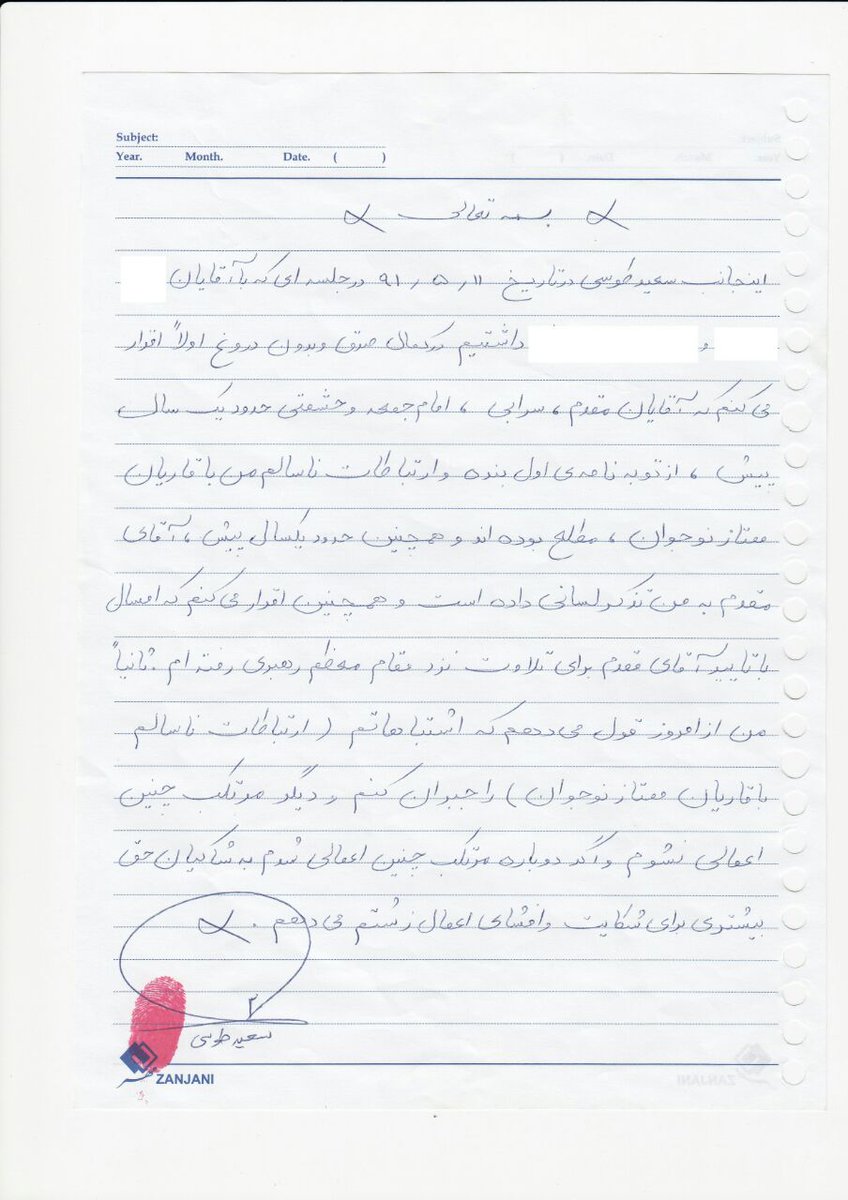 Subject:
Year. Month. Date. ( )
بسمه تعالی
اینجانب سعید طوسی در تاریخ ۹۱٫۵٫۱۱ در جلسه ای که با آقایان
و داشتیم در کمال صدق و بدون دروغ اولاً اقرار
می کنم که آقایان مقدم ، سرابی ، امام جمعه و حشمتی حدود یک سال
پیش ، از توبه نامه ی اول بنده و ارتباطات ناسالم من با قاریان
ممتاز نوجوان ، مطلع بوده اند و همچنین حدود یکسال پیش ، آقای
مقدم به من تذکر لسانی داده است و همچنین اقرار می کنم که امسال
با تایید آقای مقدم برای تلاوت نزد مقام معظم رهبری رفته ام . ثانیاً
من از امروز قول می دهم که اشتباهاتم ( ارتباطات ناسالم
با قاریان ممتاز نوجوان ) را جبران کنم و دیگر مرتکب چنین
اعمالی نشوم و اگر دوباره مرتکب چنین اعمالی شدم به شاکیان حق
بیشتری برای شکایت و افشای اعمال زشتم می دهم .
سعید طوسی
ZANJANI